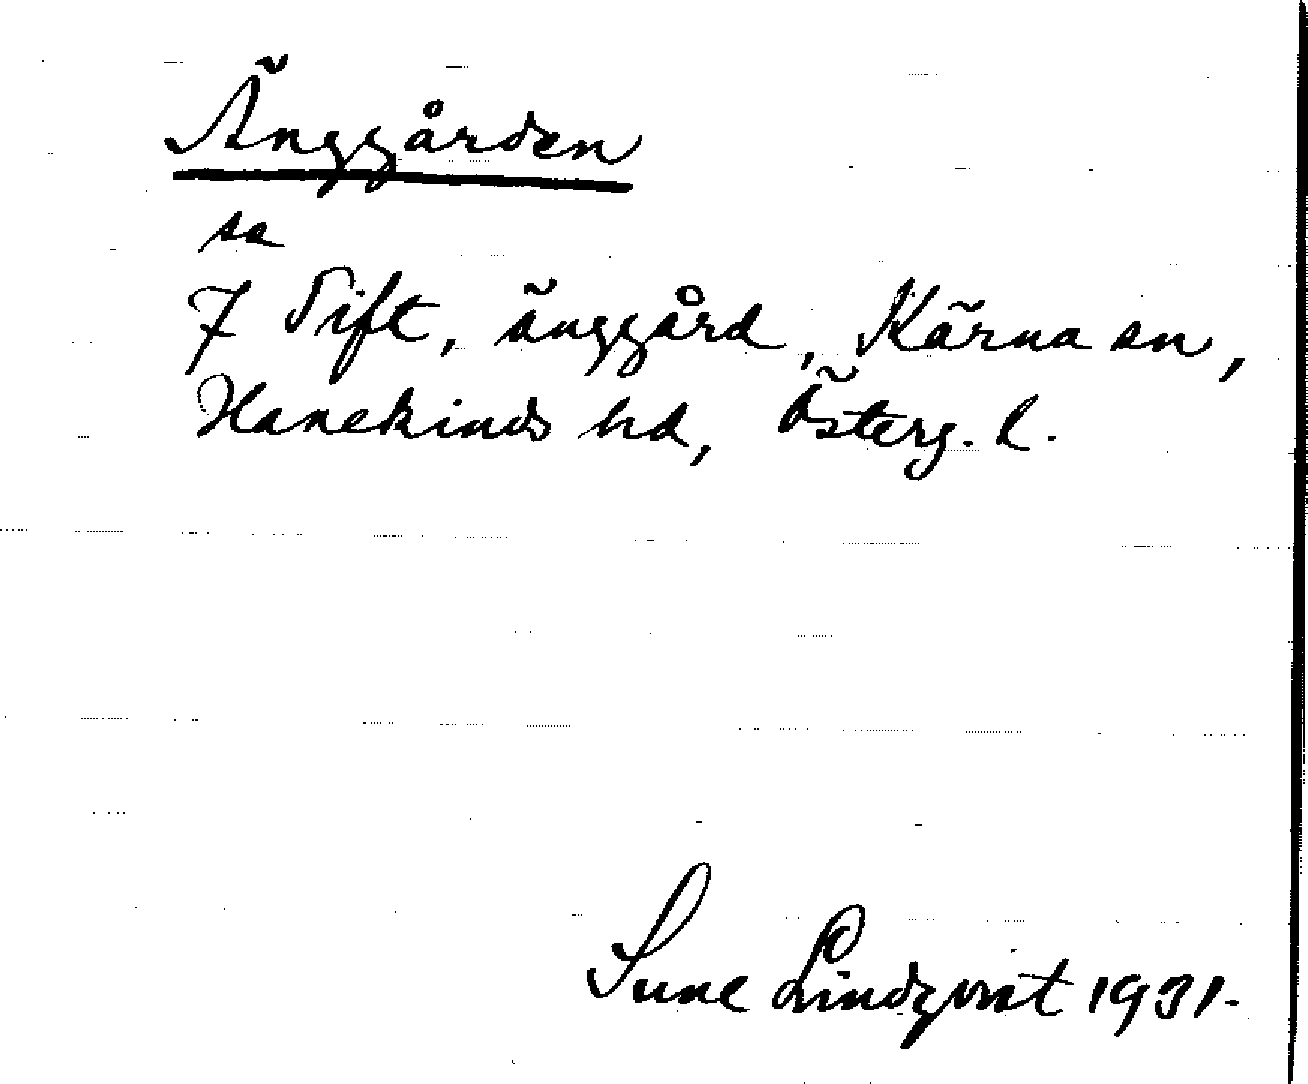 Änggården
sa
7 Tift, änggård, Kärna sn,
Hanekinds hd, Österg. l.
Sune Lindqvist 1931.